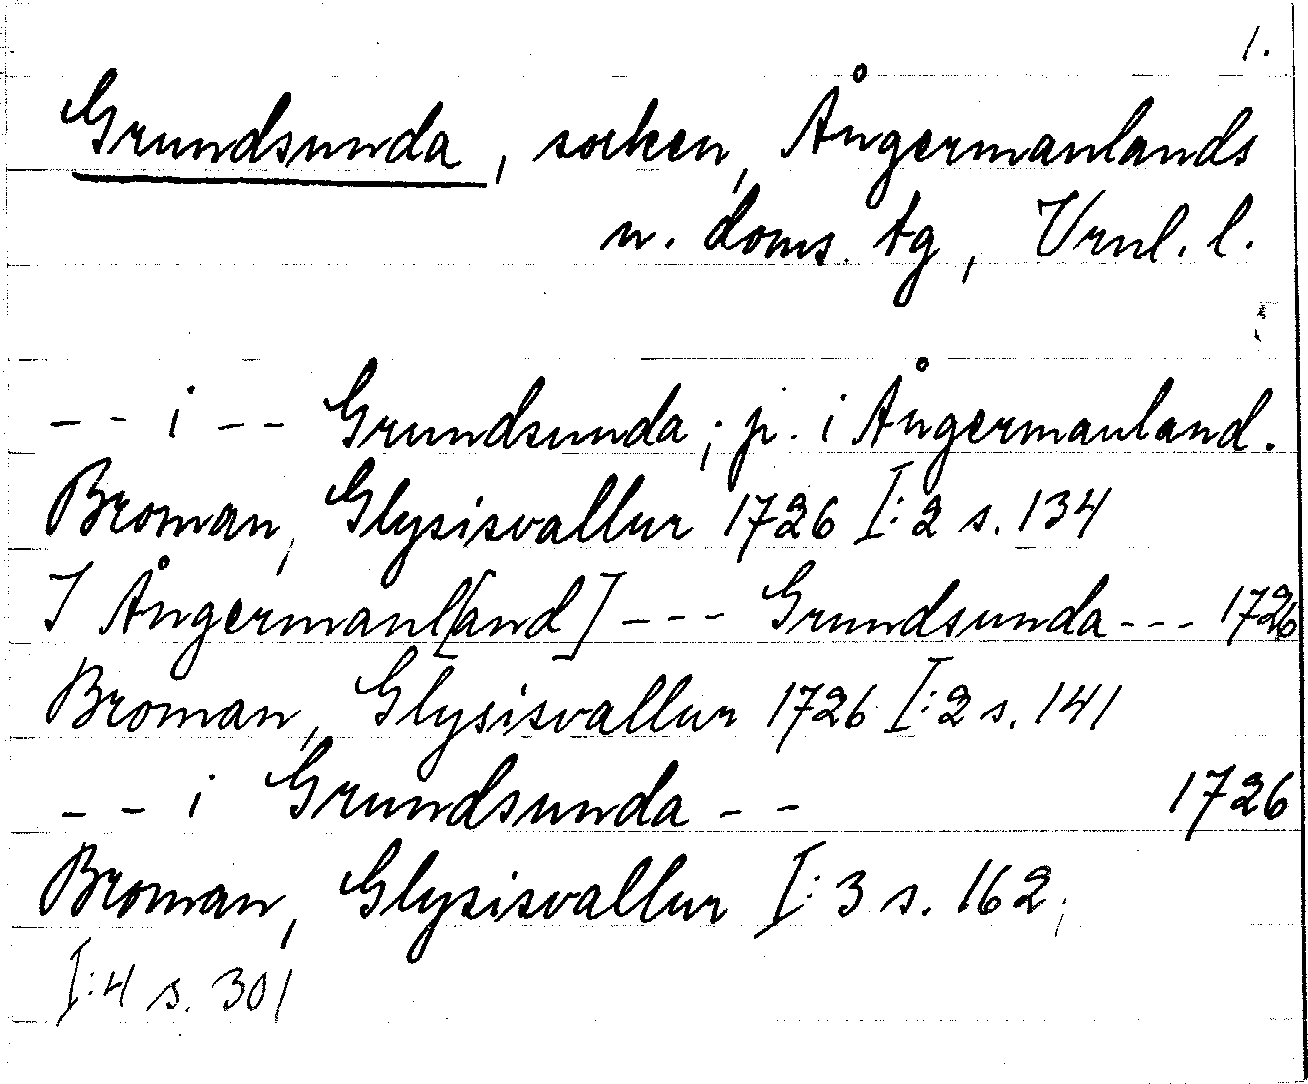 1.
Grundsunda, socken, Ångermanlands
n. doms. tg, Vrnl. l.
-- i -- Grundsunda; p. i Ångermanland.
Broman, Glysisvallur 1726 I:2 s. 134
I Ångermanl[and] --- Grundsunda --- 1726
Broman, Glysisvallur 1726 I:2 s. 141
-- i Grundsunda -- 1726
Broman, Glysisvallur I:3 s. 162;
I:4 s. 301